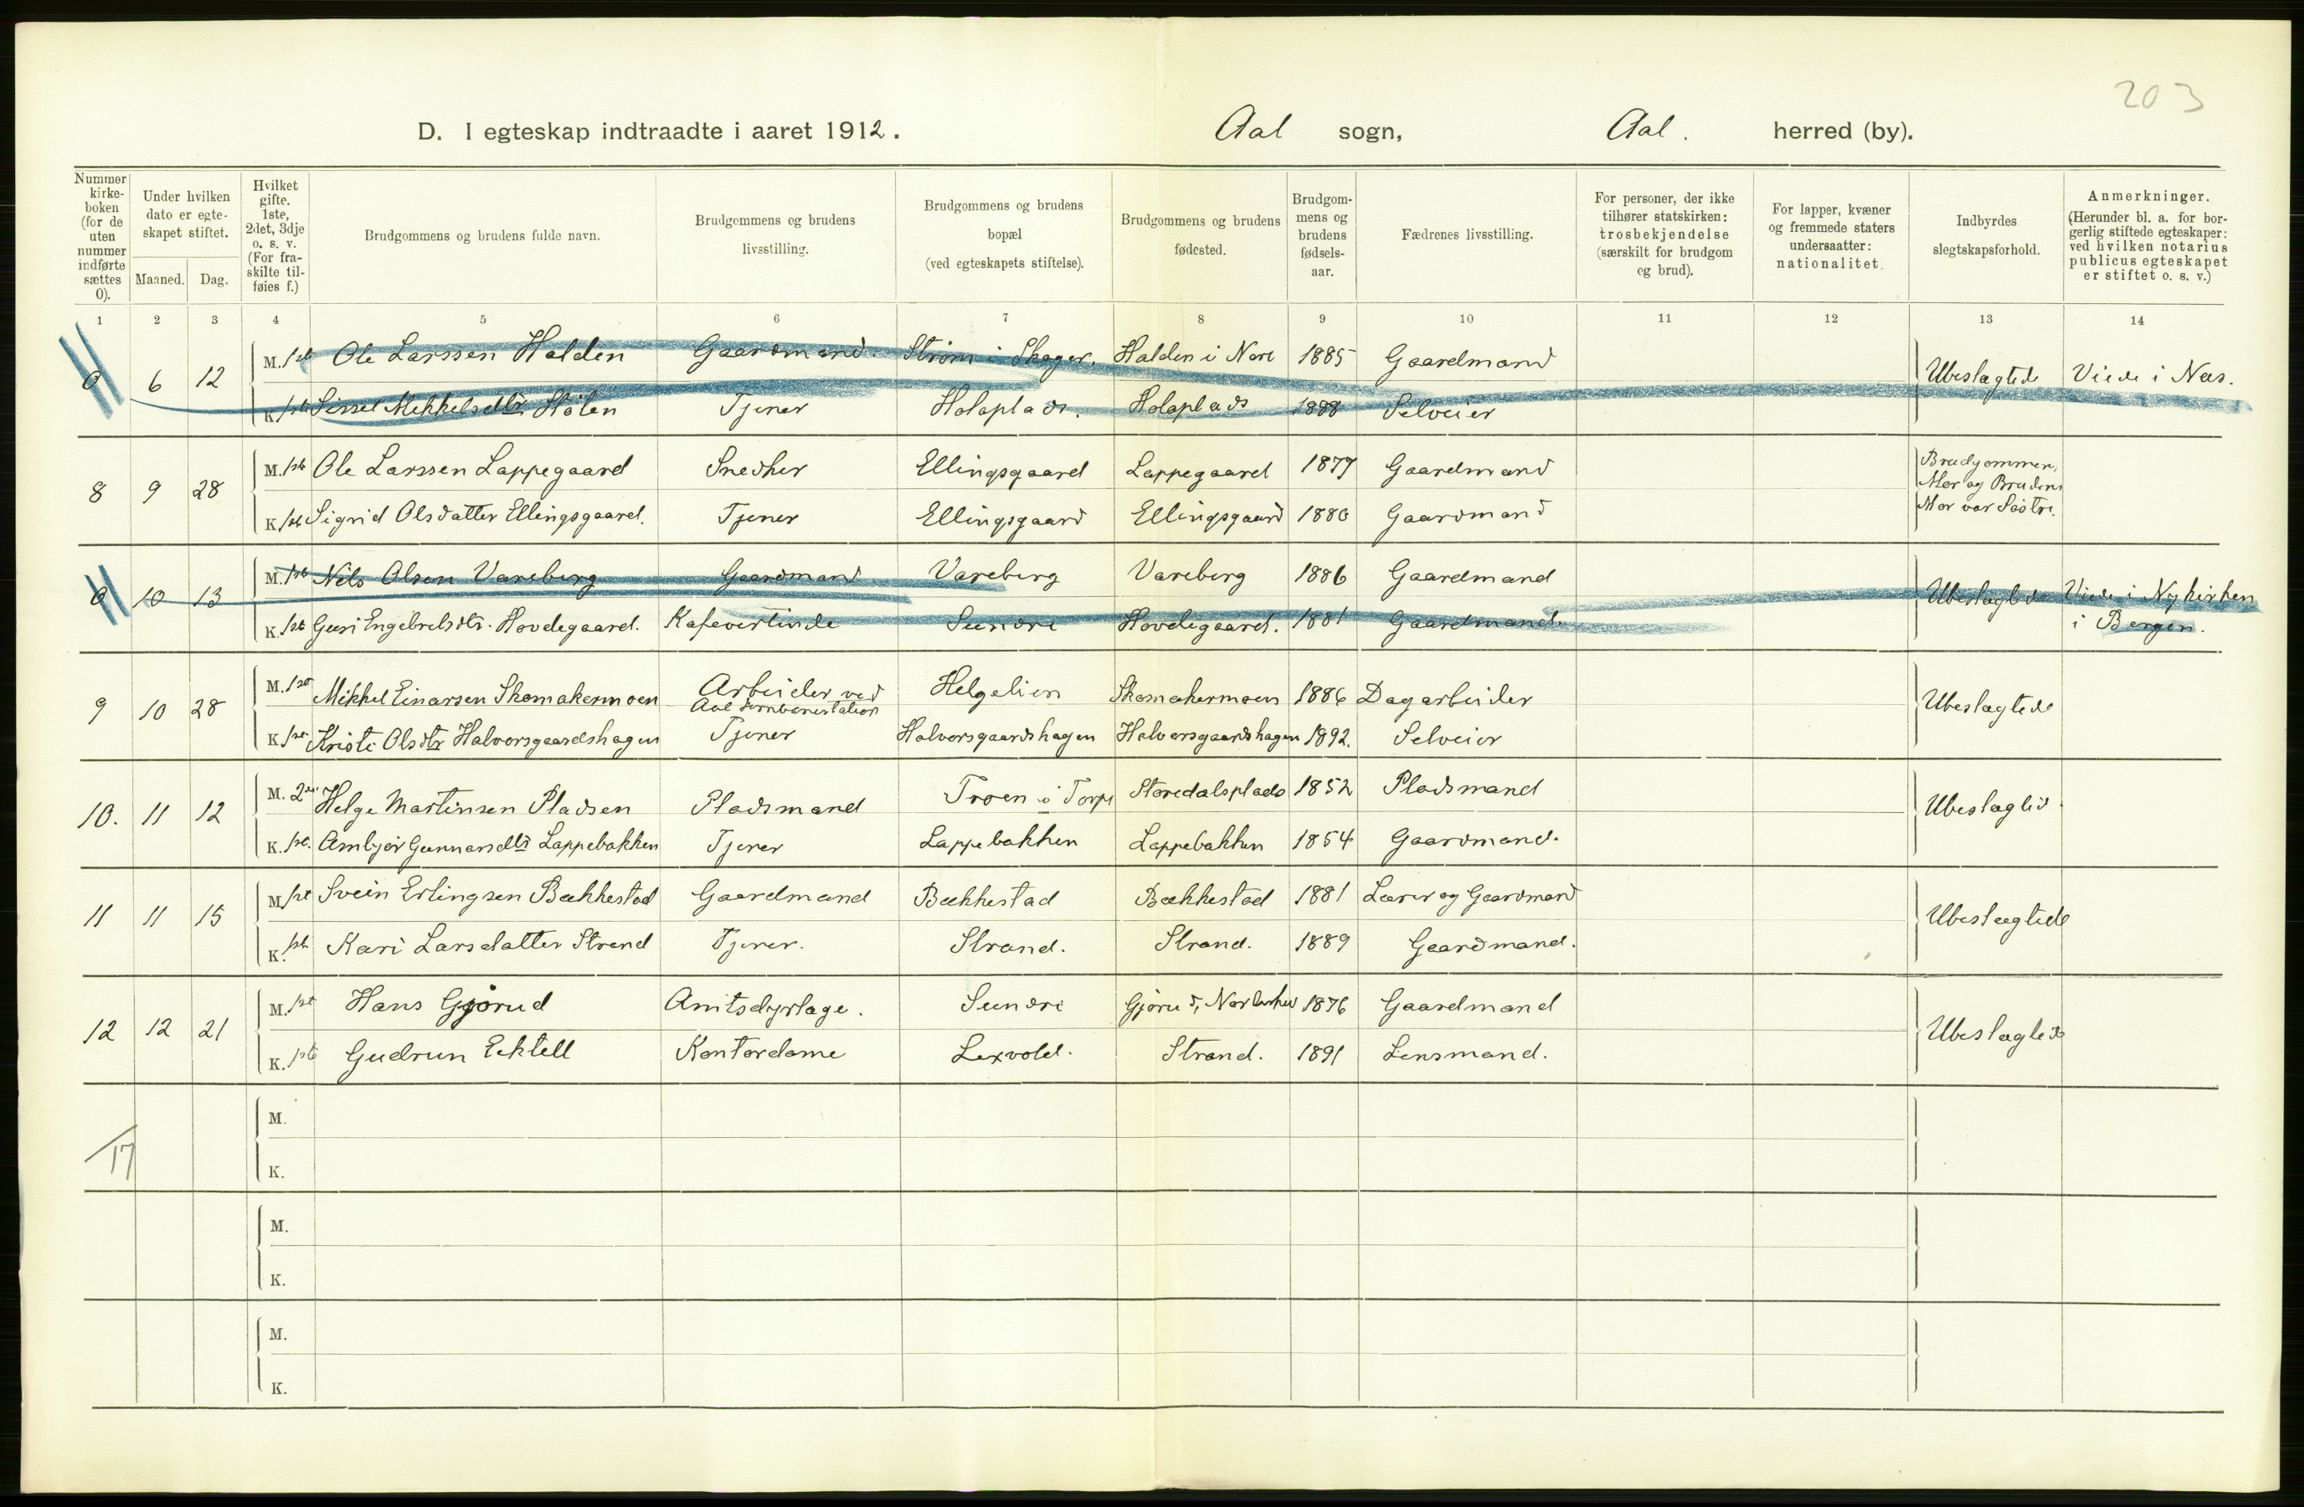 203
D. I egteskap indtraadte i aaret 1912. Aal sogn, Aal. herred (by).
Nummer kirke-boken (for de uten nummer indførte sættes 0). Under hvilken dato er egte-skapet stiftet. Maaned. Dag. Hvilket gifte. 1ste, 2det, 3dje o. s. v. (For fra-skilte til-føies f.) Brudgommens og brudens fulde navn. Brudgommens og brudens livsstilling. Brudgommens og brudens bopæl (ved egteskapets stiftelse). Brudgommens og brudens fødested. Brudgom-mens og brudens fødsels-aar. Fædrenes livsstilling. For personer, der ikke tilhører statskirken: trosbekjendelse (særskilt for brudgom og brud). For lapper, kvæner og fremmede staters undersaatter: nationalitet. Indbyrdes slegtskapsforhold. Anmerkninger. (Herunder bl. a. for bor-gerlig stiftede egteskaper: ved hvilken notarius publicus egteskapet er stiftet o. s. v.)
1 2 3 4 5 6 7 8 9 10 11 12 13 14
0 6 12 M. 1ste Ole Larssen Halden Gaardmand. Strøm i Skager. Halden i Nore 1885 Gaardmand Ubeslagtede Viede i Næs.
K. 1ste Sissel Mekkelsdtr. Stølen Tjener Holaplads. Holaplads 1888 Selveier
8 9 28 M. 1ste Ole Larssen Lappegaard Snedker Ellingsgaard Lappegaard 1877 Gaardmand Brudgommen, Mor og Brudens Mor var Søstre.
K. 1ste Sigrid Olsdatter Ellingsgaard. Tjener Ellingsgaard Ellingsgaard 1880 Gaardmand
0 10 13 M. 1ste Nils Olsen Vareberg Gaardmand Vareberg Vareberg 1886 Gaardmand Ubeslagtede Viede i Nykirken i Bergen.
K. 1ste Guri Engebretsdtr. Hovdegaard. Kafevertinde Sundre Hovdegaard. 1881 Gaardmand.
9 10 28 M. 1ste Mikkel Einarsen Skomakermoen Arbeider ved Aal Jernbanestation Helgelien Skomakermoen 1886 Dagarbeider Ubeslagtede
K. 1ste Kristi Olsdtr Halvorsgaardshagen Tjener Halvorsgaardshagen Halvorsgaardshagen 1892. Selveier
10. 11 12 M. 2den Helge Martinsen Pladsen Pladsmand Troen i Torpe Storedalsplads 1852 Pladsmand Ubeslagtede
K. 1ste. Ambjør Gunnarsdtr Lappebakken Tjener Lappebakken Lappebakken 1854 Gaardmand.
11 11 15 M. 1ste Svein Erlingsen Bækkestad Gaardmand Bækkestad Bækkestad 1881 Lærer og Gaardmand Ubeslægtede
K. 1ste Kari Larsdatter Strand Tjener. Strand. Strand. 1889 Gaardmand.
12 12 21 M. 1ste Hans Gjørud Amtsdyrlæge. Sundre Gjørud, Norderhov 1876 Gaardmand Ubeslagtede
K. 1ste Gudrun Ecktell Kontordame Lexvold. Strand. 1891 Lensmand.
M.
17
K.
M.
K.
M.
K.